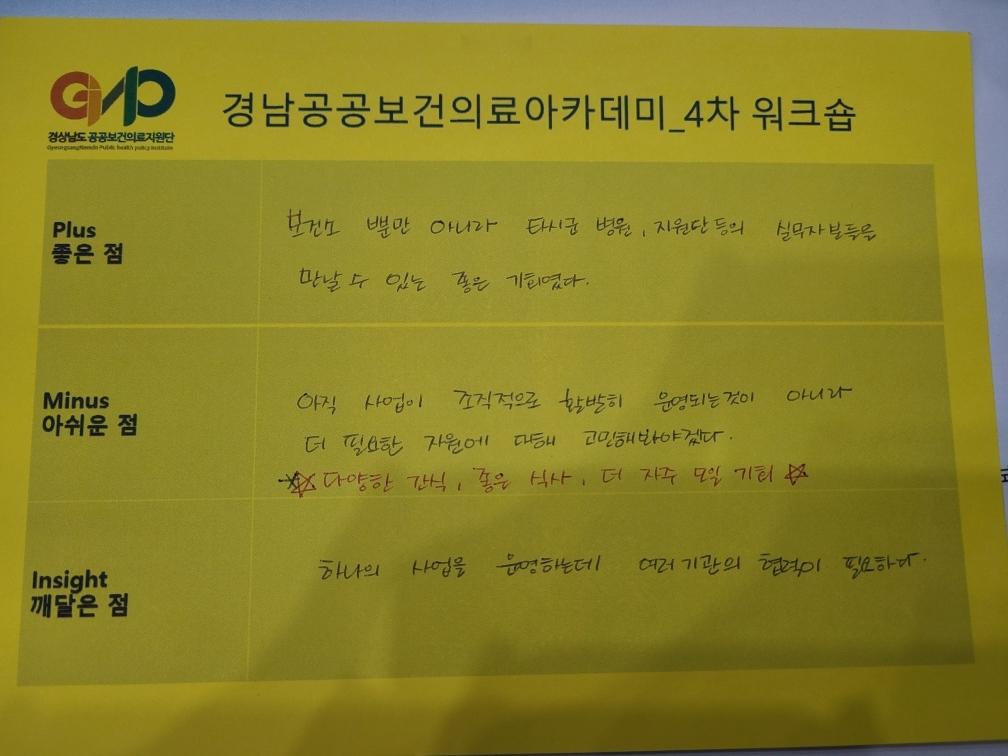 GNP
경상남도 공공보건의료지원단
GyeongsangNamdo Public health policy institute
경남공공보건의료아카데미_4차 워크숍
Plus
좋은 점
보건소 뿐만 아니라 타시군 병원, 지원단 등의 실무자분들을
만날 수 있는 좋은 기회였다.
Minus
아쉬운 점
아직 사업이 조직적으로 활발히 운영되는것이 아니라
더 필요한 자원에 대해 고민해봐야겠다.
☆다양한 간식, 좋은 식사, 더 자주 모일 기회☆
Insight
깨달은 점
하나의 사업을 운영하는데 여러기관의 협력이 필요하다.